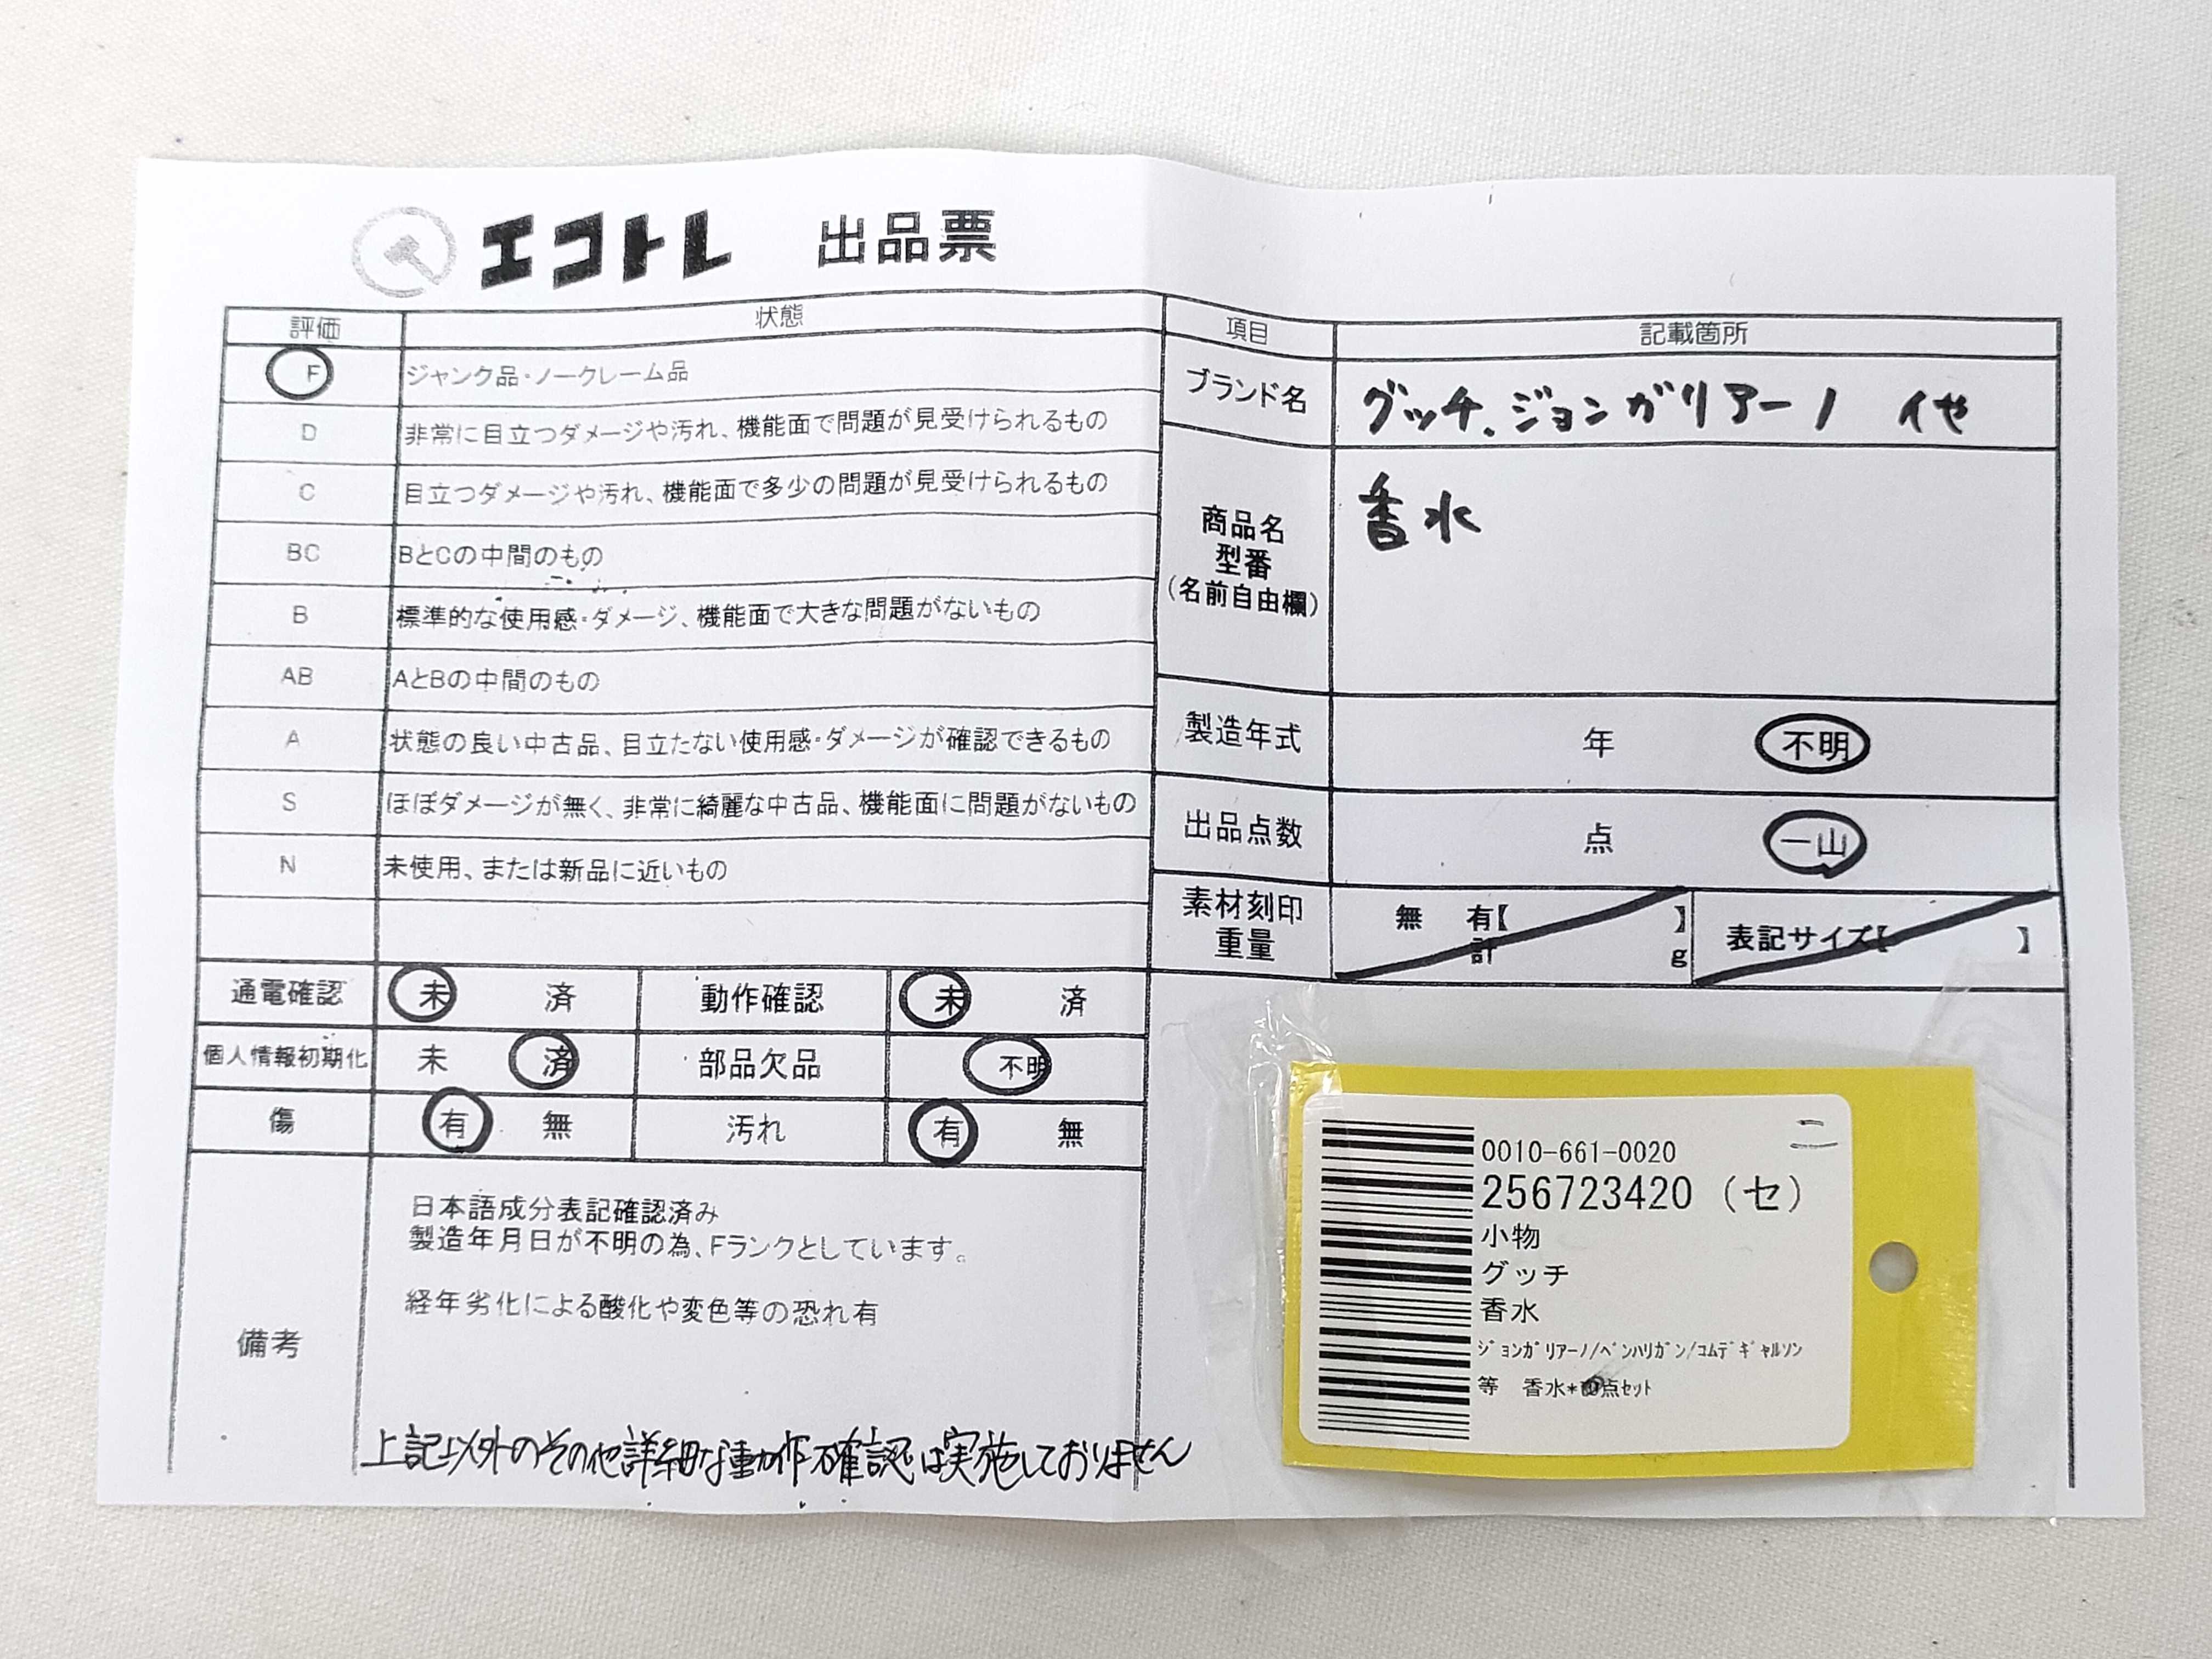 エコトレ 出品票
評価 状態
F ジャンク品・ノークレーム品
D 非常に目立つダメージや汚れ、機能面で問題が見受けられるもの
C 目立つダメージや汚れ、機能面で多少の問題が見受けられるもの
BC BとCの中間のもの
B 標準的な使用感・ダメージ、機能面で大きな問題がないもの
AB AとBの中間のもの
A 状態の良い中古品、目立たない使用感・ダメージが確認できるもの
S ほぼダメージが無く、非常に綺麗な中古品、機能面に問題がないもの
N 未使用、または新品に近いもの
通電確認 未 済 動作確認 未 済
個人情報初期化 未 済 部品欠品 不明
傷 有 無 汚れ 有 無
備考
日本語成分表記確認済み
製造年月日が不明の為、Fランクとしています。
経年劣化による酸化や変色等の恐れ有
上記以外のその他詳細な動作確認は実施しておりません
項目 記載箇所
ブランド名 グッチ.ジョンガリアーノ 他
商品名
型番
(名前自由欄)
香水
製造年式 年 不明
出品点数 点 一山
素材刻印
重量
無 有【 】
計 g
表記サイズ【 】
0010-661-0020 二
256723420 (セ)
小物
グッチ
香水
ジョンガリアーノ/ペンハリガン/コムデギャルソン
等 香水*点セット